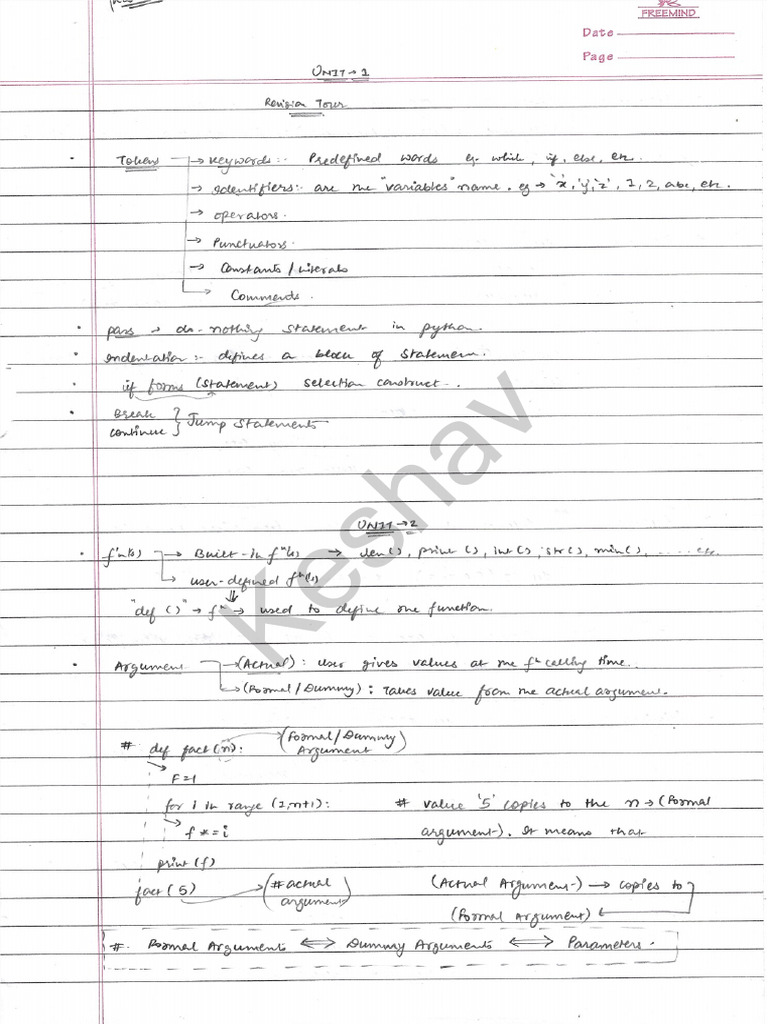 FREEMIND
Date
Page
UNIT → 1
Revision Tour
• Tokens → Keywords:- Predefined words eg. while, if, else, etc.
→ Identifiers:- are the "variables" name. eg → 'x', 'y', 'z', 1, 2, abc, etc.
→ operators.
→ Punctuators.
→ Constants / Literals
→ Commends.
• pass → do-nothing statement in python.
• Indentation :- defines a block of statement.
• if forms (statement) selection construct -.
• Break
continue } Jump statements
Keshav
UNIT → 2
• fⁿ(s) → Built-in fⁿ(s) → len(), print(), int(), str(), min(), ..... etc.
→ user-defined fⁿ(s)
"def ()" → fⁿ → used to define one function.
• Argument → (Actual) : User gives values at the fⁿ calling time.
→ (Formal / Dummy) : Takes value from the actual argument.
# def fact(n): (Formal / Dummy
Argument)
F=1
for i in range (1,n+1): # value '5' copies to the n → (Formal
f *= i argument-). It means that
print(f)
fact(5) → (# actual argument) (Actual Argument-) → copies to
(Formal Argument) ←
#. Formal Arguments ⟺ Dummy Arguments ⟺ Parameters.